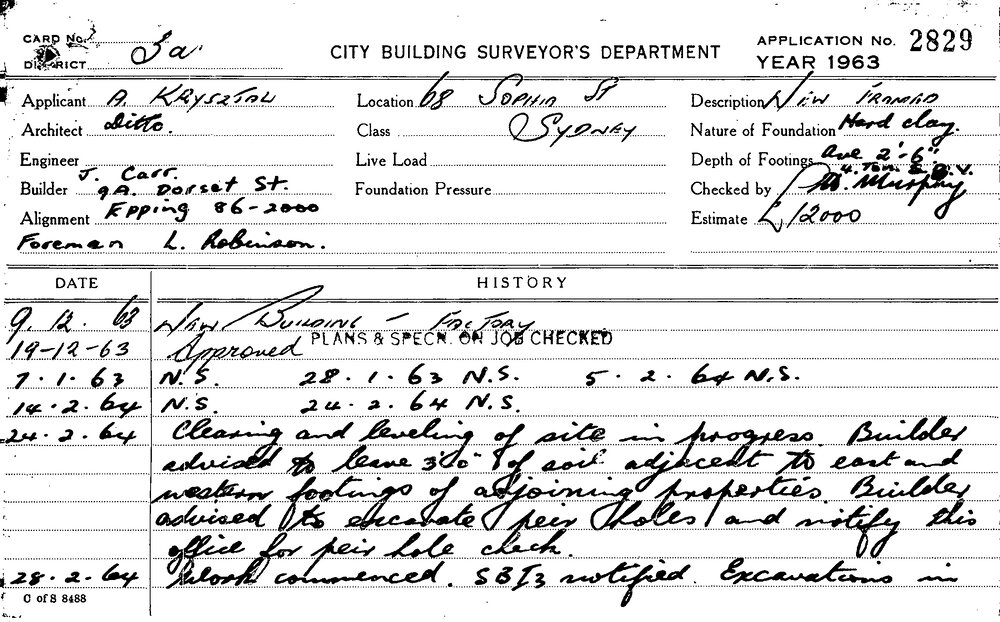 CARD No. 3
DISTRICT 3a
CITY BUILDING SURVEYOR'S DEPARTMENT
APPLICATION No. 2829
YEAR 1963
Applicant A. KRYSZTAL
Location 68 SOPHIA ST
Description NEW
Architect Ditto.
Class SYDNEY
Nature of Foundation Hard clay.
Engineer
Live Load
Depth of Footings Ave 2'-6"
J. Carr.
Builder 9A. Dorset St.
Foundation Pressure
Checked by M. Murphy
Alignment Epping 86-2000
Estimate £12000
Foreman L. Robinson.
DATE HISTORY
9. 12. 63 NEW BUILDING - FACTORY
PLANS & SPECN. ON JOB CHECKED
19-12-63 Approved
7.1.63 N.S. 28.1.63 N.S. 5.2.64 N.S.
14.2.64 N.S. 24.2.64 N.S.
24.2.64 Clearing and leveling of site in progress. Builder
advised to leave 3'0" of soil adjacent to east and
western footings of adjoining properties. Builder
advised to excavate peir holes and notify this
office for peir hole check.
28.2.64 Work commenced. SBI3 notified. Excavations in
C of S 8488